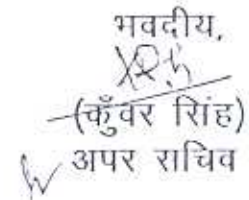 भवदीय,
(कुँवर सिंह)
अपर सचिव